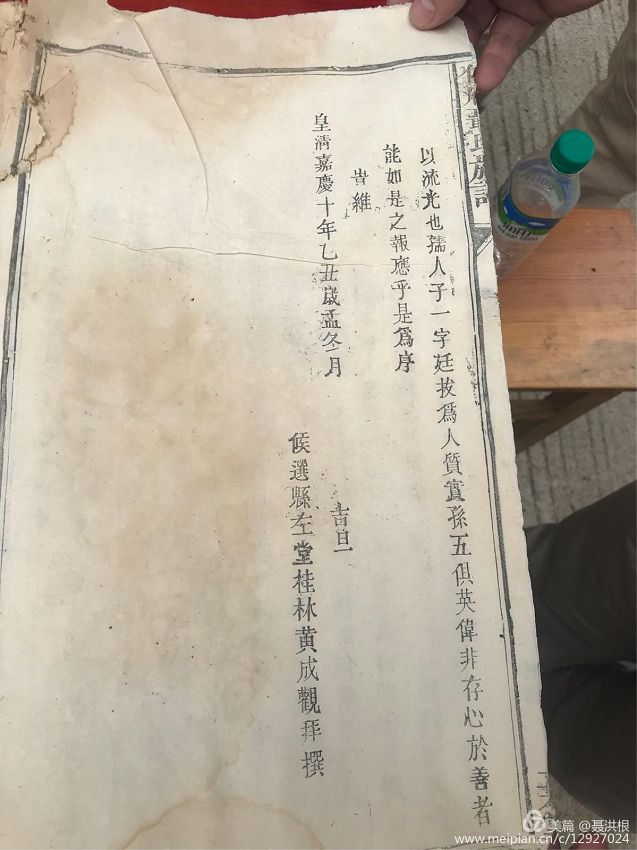 氏族譜
以流光也孺人子一字廷拔爲人質實孫五俱英偉非存心於善者
能如是之報應乎是爲序
旹維
皇清嘉慶十年乙丑歲孟冬月
吉旦
候選縣左堂桂林黃成觀拜撰
美篇 @聂洪根
www.meipian.cn/c/12927024